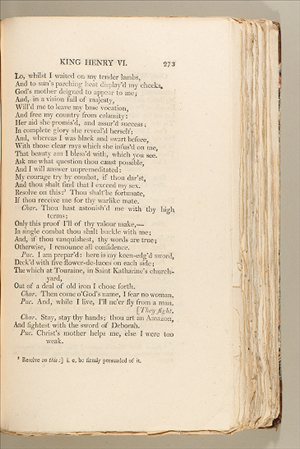 KING HENRY VI. 273
Lo, whilst I waited on my tender lambs,
And to sun's parching heat display'd my cheeks,
God's mother deigned to appear to me;
And, in a vision full of majesty,
Will'd me to leave my base vocation,
And free my country from calamity:
Her aid she promis'd, and assur'd success;
In complete glory she reveal'd herself;
And, whereas I was black and swart before,
With those clear rays which she infus'd on me,
That beauty am I bless'd with, which you see.
Ask me what question thou canst possible,
And I will answer unpremeditated:
My courage try by combat, if thou dar'st,
And thou shalt find that I exceed my sex.
Resolve on this:¹ Thou shalt be fortunate,
If thou receive me for thy warlike mate.
Char. Thou hast astonish'd me with thy high
terms;
Only this proof I'll of thy valour make,—
In single combat thou shalt buckle with me;
And, if thou vanquishest, thy words are true;
Otherwise, I renounce all confidence.
Puc. I am prepar'd: here is my keen-edg'd sword,
Deck'd with five flower-de-luces on each side;
The which at Touraine, in Saint Katharine's church-
yard,
Out of a deal of old iron I chose forth.
Char. Then come o'God's name, I fear no woman.
Puc. And, while I live, I'll ne'er fly from a man.
[They fight.
Char. Stay, stay thy hands; thou art an Amazon,
And fightest with the sword of Deborah.
Puc. Christ's mother helps me, else I were too
weak.
¹ Resolve on this:] i. e. be firmly persuaded of it.